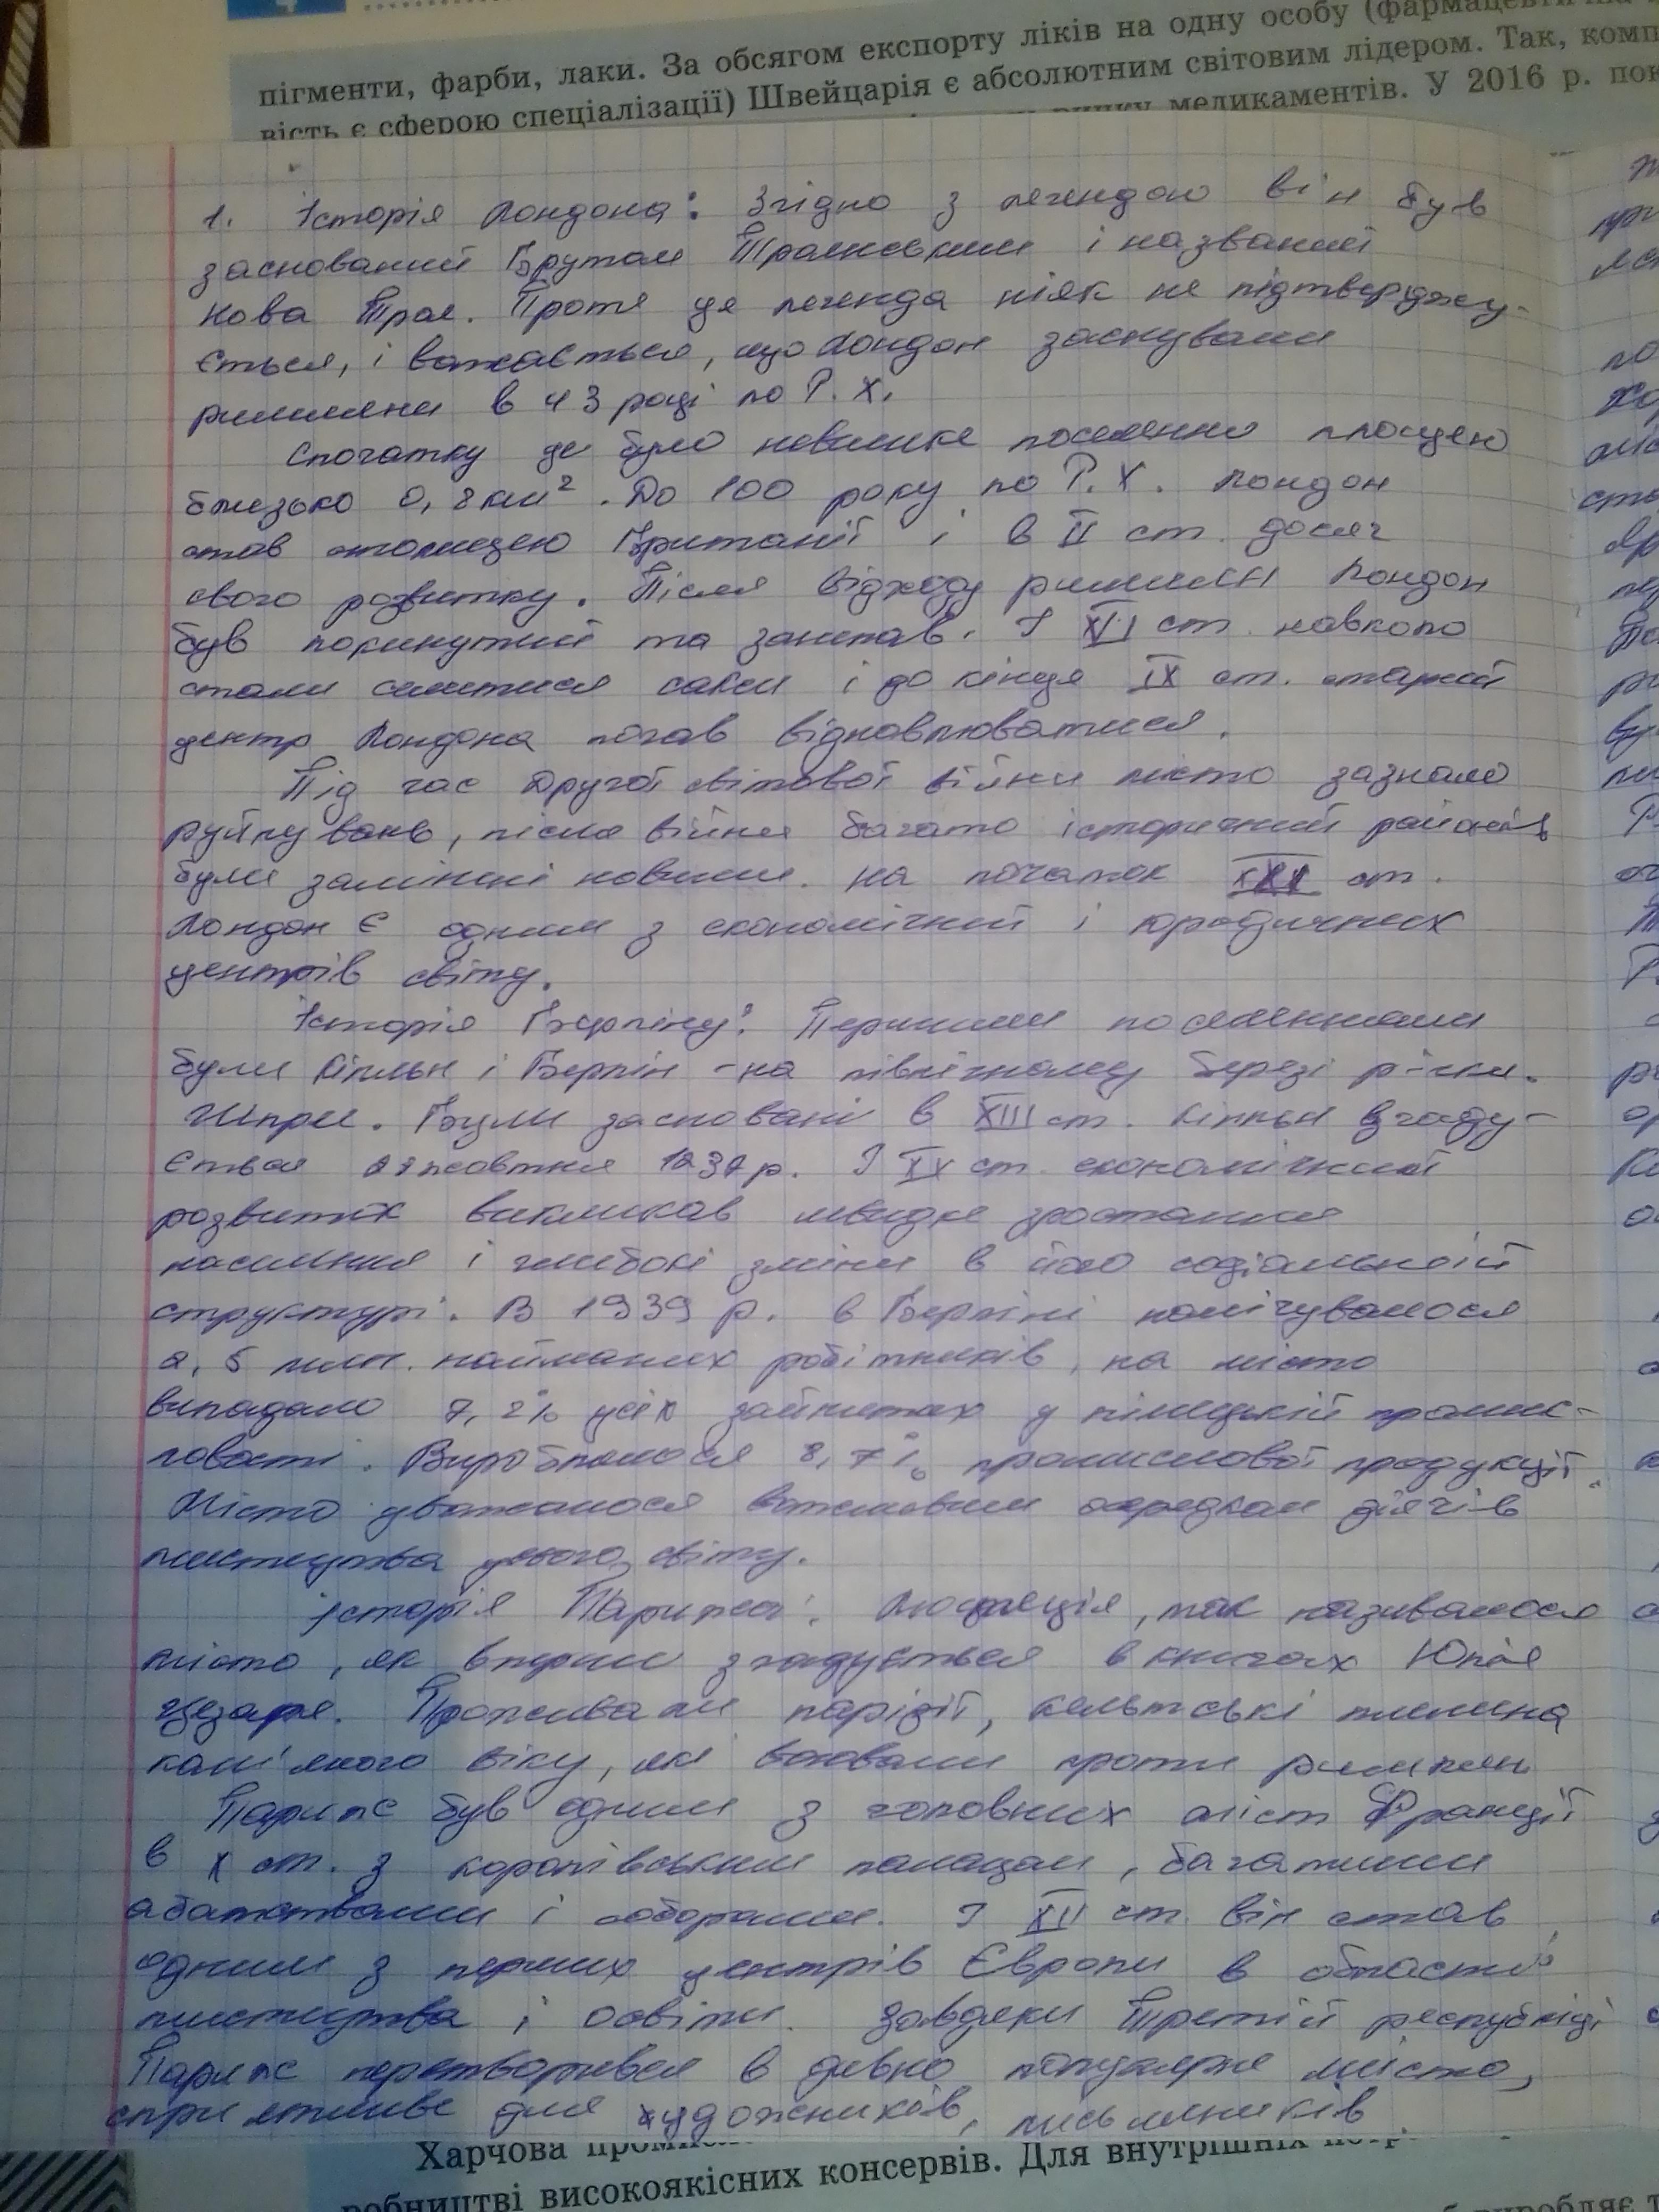 пігменти, фарби, лаки. За обсягом експорту ліків на одну особу
вість є сферою спеціалізації) Швейцарія є абсолютним світовим лідером. Так,
ринку медикаментів. У 2016 р.
1. Історія Лондона: Згідно з легендою він був
заснований Брутом Троянським і названий
Нова Троя. Проте ця легенда ніяк не підтверджу-
ється, і вважається, що Лондон заснували
римляни в 43 році по Р. Х.
Спочатку це було невелике поселення площею
близько 0,8 км². До 100 року по Р. Х. Лондон
став столицею Британії і в II ст. досяг
свого розвитку. Після відходу римлян Лондон
був покинутий та занепав. У ст. навколо
стали селитися сакси і до кінця IX ст. старий
центр Лондона почав відновлюватися.
Під час Другої світової війни місто зазнало
руйнувань, після війни багато історичний районів
були замінені новими. На початок XXI ст.
Лондон є одним з економічний і юридичних
центрів світу.
Історія Берліну: Першими поселеннями
були Кельн і Берлін - на північному березі річки.
Шпрее. Були засновані в XIII ст. Кельн згаду-
ється жовтня 1237 р. У XX ст. економічний
розвиток викликав швидке зростання
населення і глибокі зміни в його соціальній
структурі. В 1939 р. в Берліні налічувалося
2,5 млн. найманих робітників, на місто
випадало 7,2% усіх зайнятих у німецькій промис-
ловості. Вироблялося 8,7% промислової продукції.
Місто уважалося важливим осередком діячів
мистецтва усього світу.
Історія Парижа: Лютеція, так називалося
місто, як вперше згадується в книгах Юлія
Цезаря. Проживали парізії, кельтські племена
кам'яного віку, які воювали проти римлян
Париж був одним з головних міст Франції
в X ст. з королівським палацом, багатими
абатствами і соборами. У XII ст. він став
одним з перших центрів Європи в області
мистецтва і освіти. Завдяки Третій республіці
Париж перетворився в дивно популярне місто,
сприятливе для художників, письменників
Харчова
робництві високоякісних консервів. Для внутрішніх